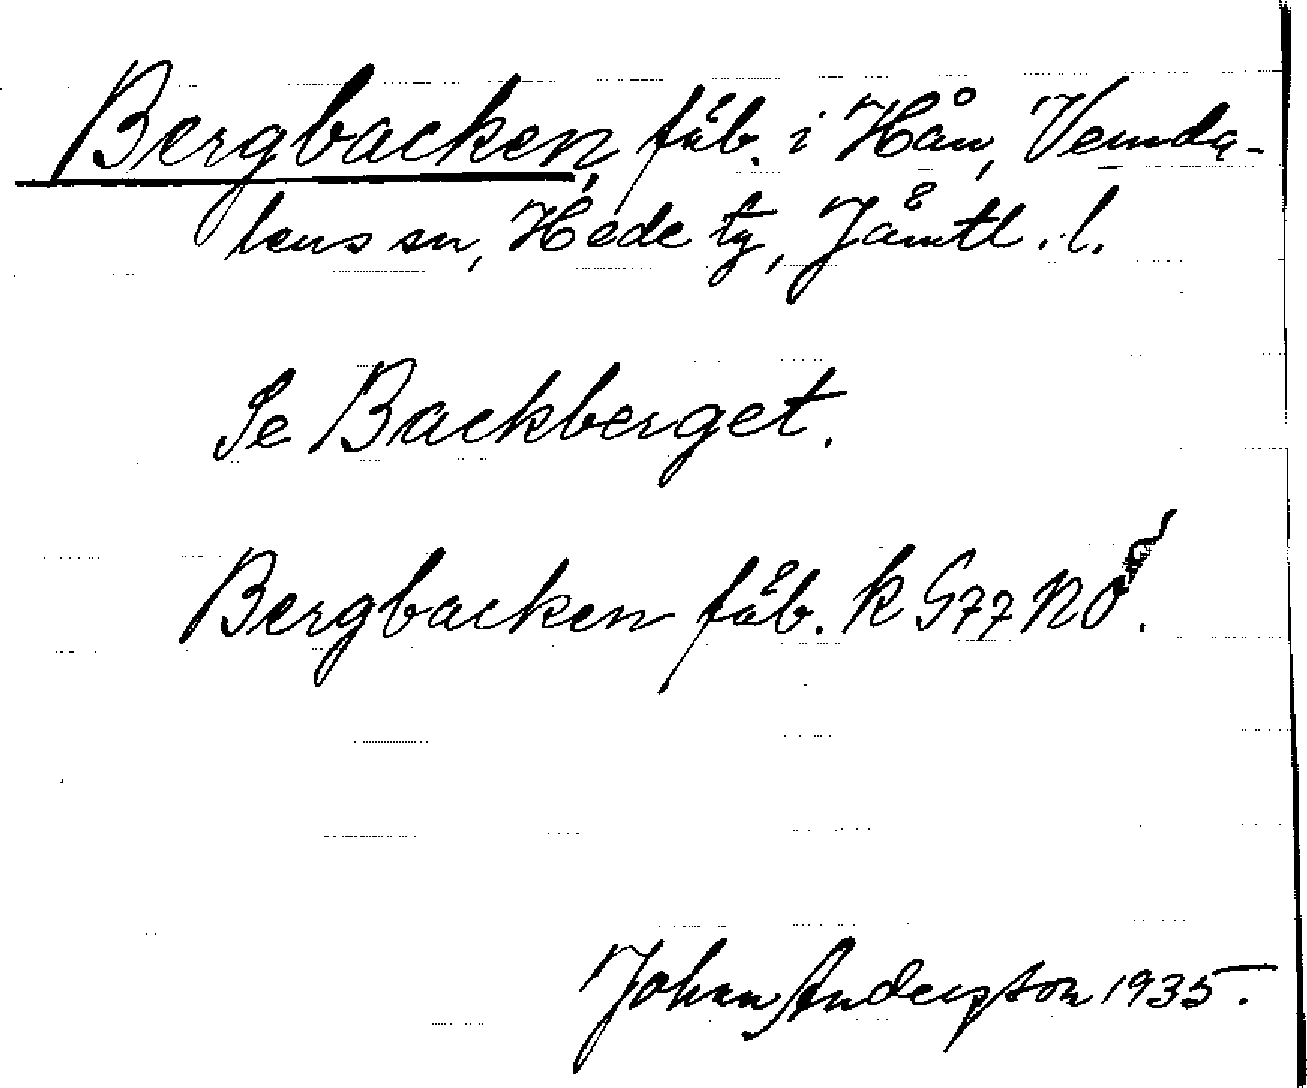 Bergbacken, fäb. i Hån, Vemda-
lens sn, Hede tg, Jämtl. l.
Se Backberget.
Bergbacken fäb. k G77NO.
Johan Andersson 1935.